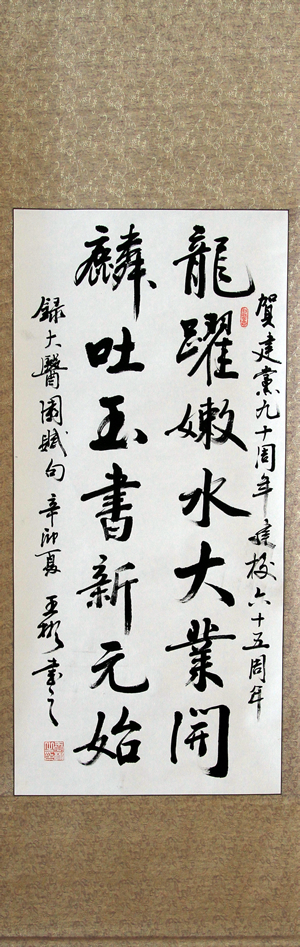 賀建黨九十周年建校六十五周年
龍躍嫩水大業開
麟吐玉書新元始
錄大醫園賦句 辛卯夏 王彬書之